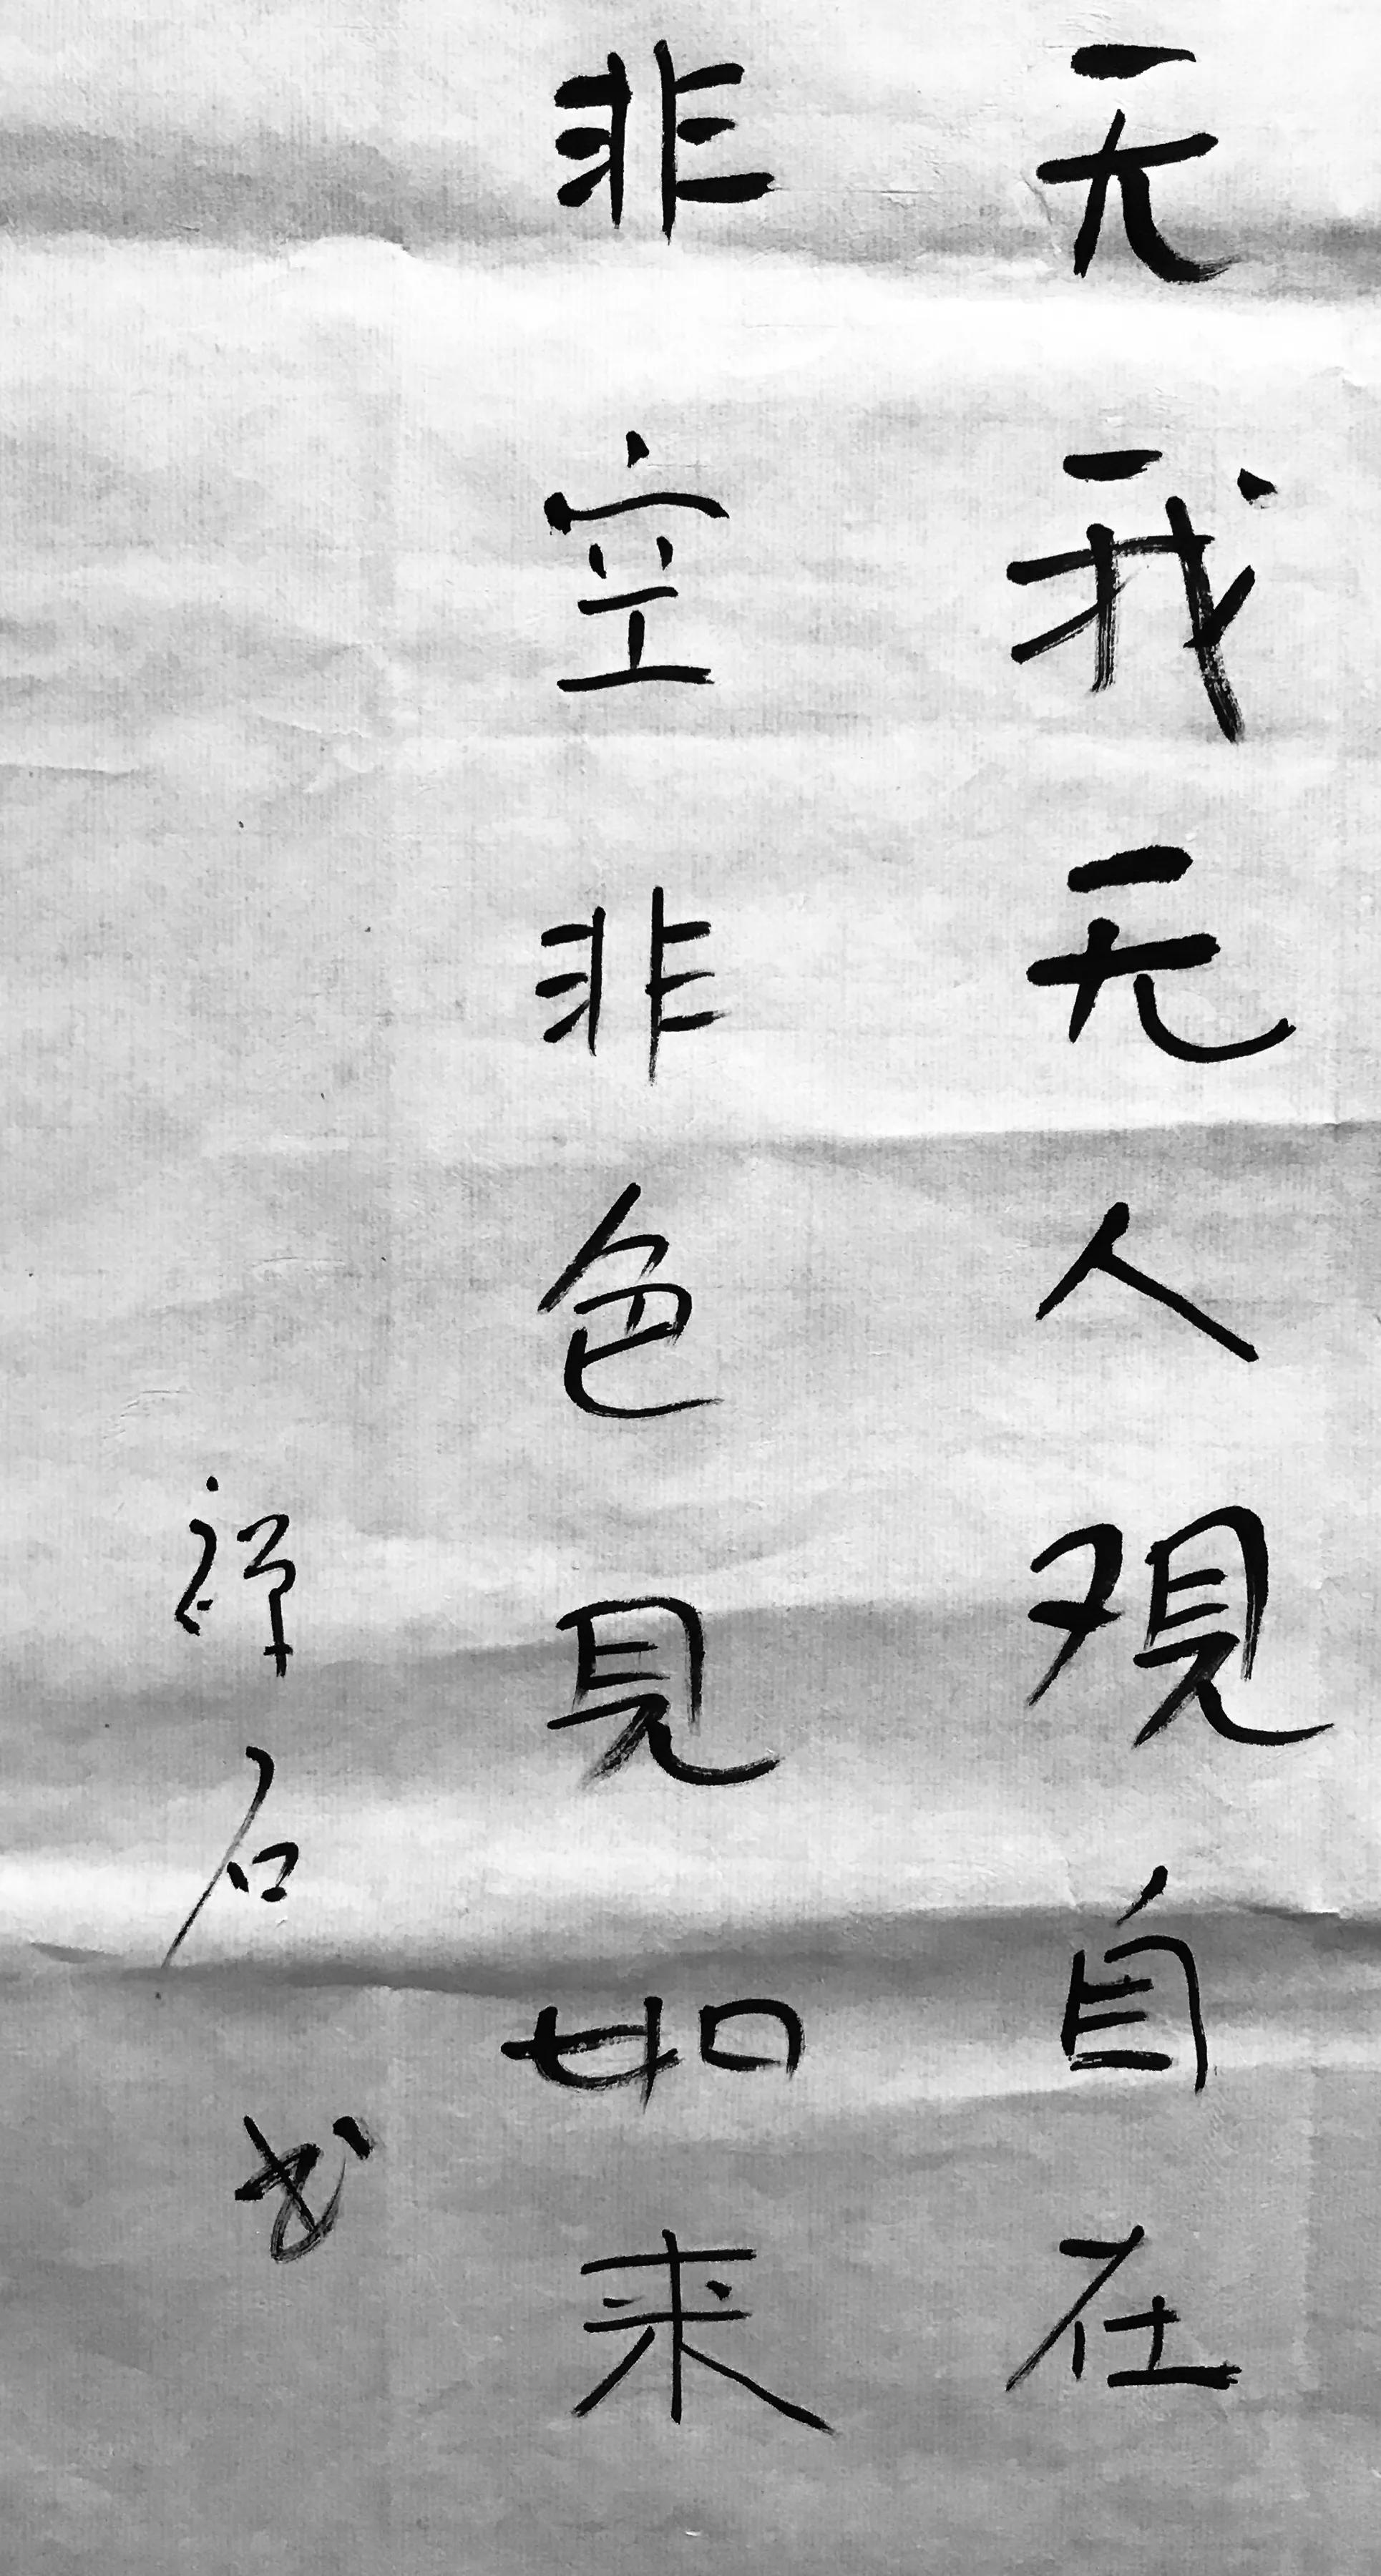 无我无人观自在
非空非色見如来
禅石书